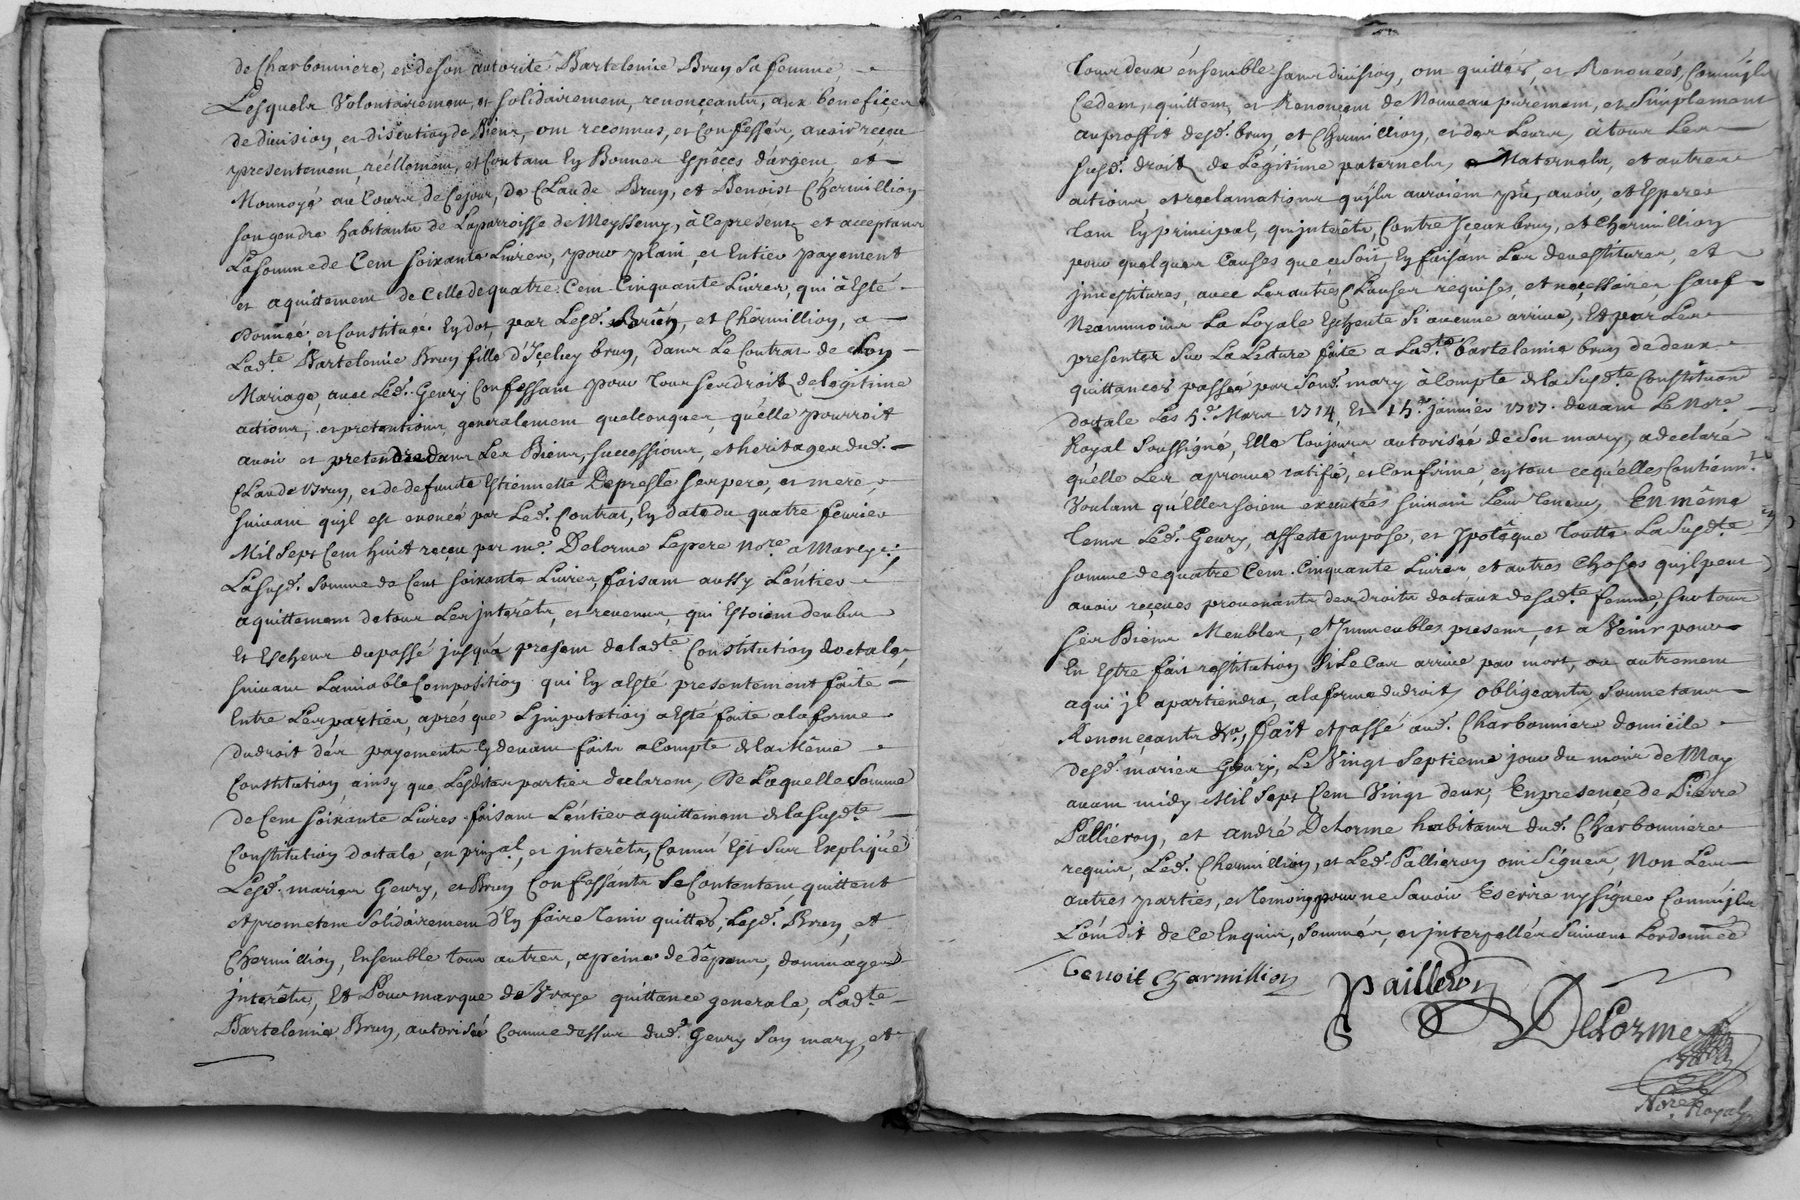 de Charbonniere, et de son autorité Bartelemie Brun sa femme,
Lesquels Volontairement, et solidairement, renonçeants, aux benefiçes
de division, et discution de Biens, ont reconnus, et Confessés, avoir reçeu
presentement, réellement, et Contant En Bonnes Espêces d'argent, et
Monnoye au Cours de Cejour, de Claude Brun, et Benoist Chermillion
son gendre habitants de Laparroisse de Meyssemy, à Ce presents et acceptants
La somme de Cent soixante Livres, pour plain, et Entier payement
et aquittement de Celle de quatre Cent Cinquante Livres, qui à Esté
Donnée, et Constituée En dot, par Lesd. Brun, et Chermillion, a
Lad.te Bartelemie Brun fille d'Içeluy brun, dans Le Contrat de son
Mariage, avec Led. Geury Confessant pour tous ses droits de legitime
actions, et pretentions, generalement quelconques, qu'elle pourroit
avoir et pretendre dans Les Biens, successions, et heritages dud.
Claude Brun, et de defunte Estiennette Depresle ses pere, et mere,
suivant qu'jl est enoncé par Led. Contrat, En date du quatre fevrier
Mil Sept Cent huit reçeu par me. Delorme Le pere No.re a
La susd. somme de Cent soixante Livres, faisant aussy L'entier
aquittement de tous Les jnterêts, et revenus, qui Estoient deubs
Et Escheus du passé jusqu'a present de lad.te Constitution doctale,
suivant L'amiable Composition qui En a Esté presentement faite
Entre Les parties, aprés que L'jmputation a Esté faite a la forme
du droit des payements Cy devant faits a Compte de la même
Constitution ainsy que Lesdites parties declarent, De Laquelle somme
de Cent soixante Livres faisant L'entier aquittement de la susd.te
Constitution doctale, en prinçal, et jnterêts, Comm'Est sus Expliqué
Lesd. mariés Geury, et Brun Confessants se Contentent quittent
et promettent solidairement d'En faire tenir quittes, Lesd. Brun, et
Chermillion, Ensemble tous autres, a peine de dêpens, dommages
jnterêts, Et Pour marque de Vraye quittance generale, Lad.te
Bartelemie Brun, autorisée Comme dessus dud. Geury son mary, et
tous deux énsemble sans division, ont quittés, et Renoncés, Comm'jls
Cedent, quittent, et Renonçent de Nouveau purement, et simplement
au proffit desd. brun et Chermillion, et des Leurs, à tous Les
susd. droits de Légitime paternels, Maternels, et autres
actions et reclamations qu'jls auroient pû, avoir, et Esperer
tant En principal, qu'jnterêts, Contre Jçeux brun, et Chermillion
pour quelques Causes que ce soit, En faisant Les devestitures, et
jnvestitures, avec Les autres Clauses requises, et neçessaires, sauf
Neammoins La Loyale Escheute si aucune arrive, Et par Les
presentes sur La Lecture faite a Lad.te Bartelemie brun de deux
quittances passées par sond. mary à Compte de la susd.te Constitution
doctale Les 5.e Mars 1714, Et 15.e janvier 1717. devant Le No.re
Royal soussigné, Elle toujours autorisée de son mary, a declaré
qu'elle Les aprouve ratifie, et Confirme, en tout ce qu'elles Contienn.t
Voulant qu'Elles soient executées suivant Leur teneur, En même
tems Led. Geury, affecte jmpose, et Jpotêque toutte La susd.te
somme de quatre Cent Cinquante Livres et autres Choses qu'jl peut
avoir reçeues provenants des droits doctaux de sad.te femme, sur tous
ses Biens Meubles, et Jmmeubles presents, et a Venir pour
En Estre fait restitution si Le Cas arrive par mort, ou autrement
a qui jl apartiendra, a la forme du droit, obligeants, soumetans
Renonçeants &a, fait et passé aud. Charbonniere domicile
desd. mariés Geury, Le Vingt Septieme jour du mois de May
avant midy Mil Sept Cent Vingt deux, En presençe de Pierre
Palliéron, et andré Delorme habitants dud. Charbonniere
requis, Led. Chermillion, et Led. Pallieron ont signés, Non Les
autres parties, et temoins pour ne savoir Escrire ny signer Comm'jls
L'ont dit de Ce Enquis, sommés, et jnterpellés suivant L'ordonnée
benoit Charmillion
Pailleron
Delorme
No.re Royal